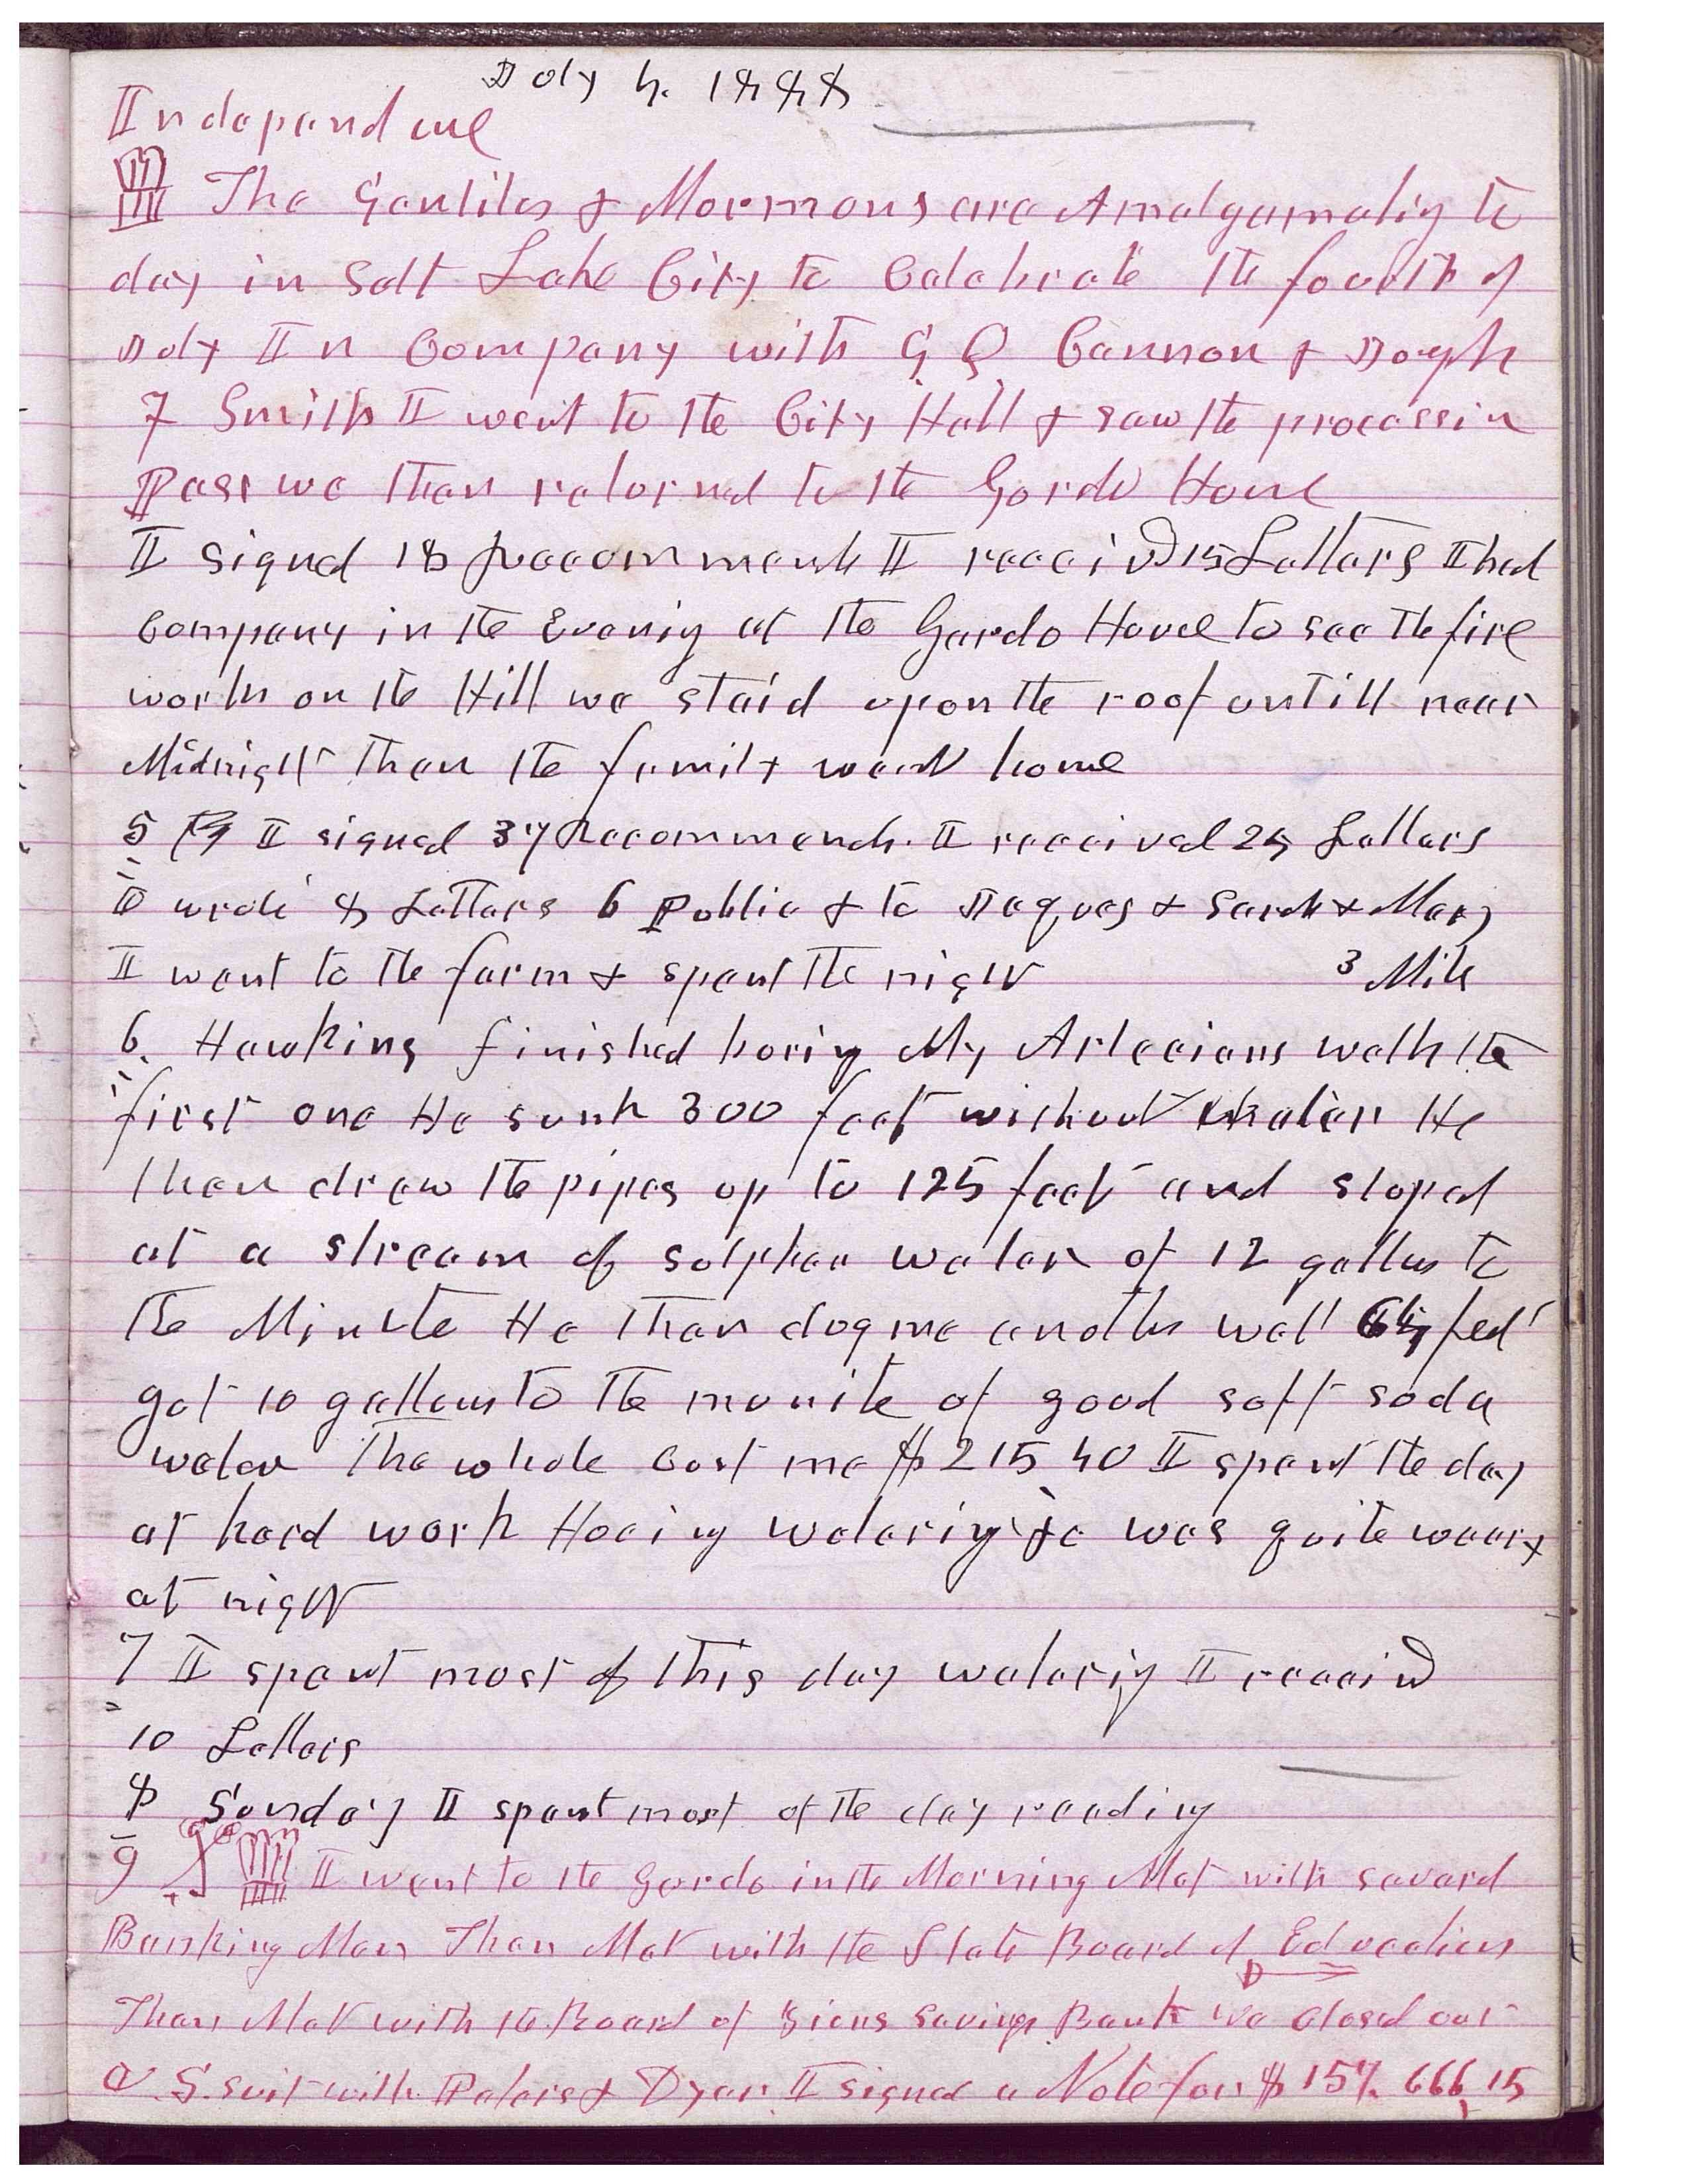 July 4. 1888
Independence
The Gentiles & Mormons are Amalgamatig to
day in Salt Lake City to Celebrate the fourth of
July I In Company with G Q Cannon & Joseph
F Smith I went to the City Hall & saw the processin
Pass we then returned to the Gardo House
I signed 18 Recommends I received 15 Letters I had
Company in the Evenig at the Gardo House to see the fire
works on the Hill we staid upon the roof untill near
Midnight then the family went home
5 I signed 37 Recommends. I received 25 Letters
I wrote 8 Letters 6 Public & to Jaques & Sarah & Mary
I went to the farm & spent the night 3 Mile
6. Hawking finished borig My Artecians wells the
first one He sunk 300 feet without water He
then drew the pipes up to 125 feet and stoped
at a stream of sulpher water of 12 gallons to
the Minute He then dug me another well feet
got 10 gallons to the munite of good soft soda
water The whole cost me $215 40 I spent the day
at hard work Hoeing waterig &c was quite weary
at night
7 I spent most of this day waterig I received
10 Letters
8 Sunday I spent most of the day reading
9 I went to the Gardo in the Morning Met with several
Banking Men Then Met with the State Board of Education
Then Met with the Board of Zions Savings Bank we closed our
U.S. suit with Peters & Dyer I signed a Note for $157,666,15